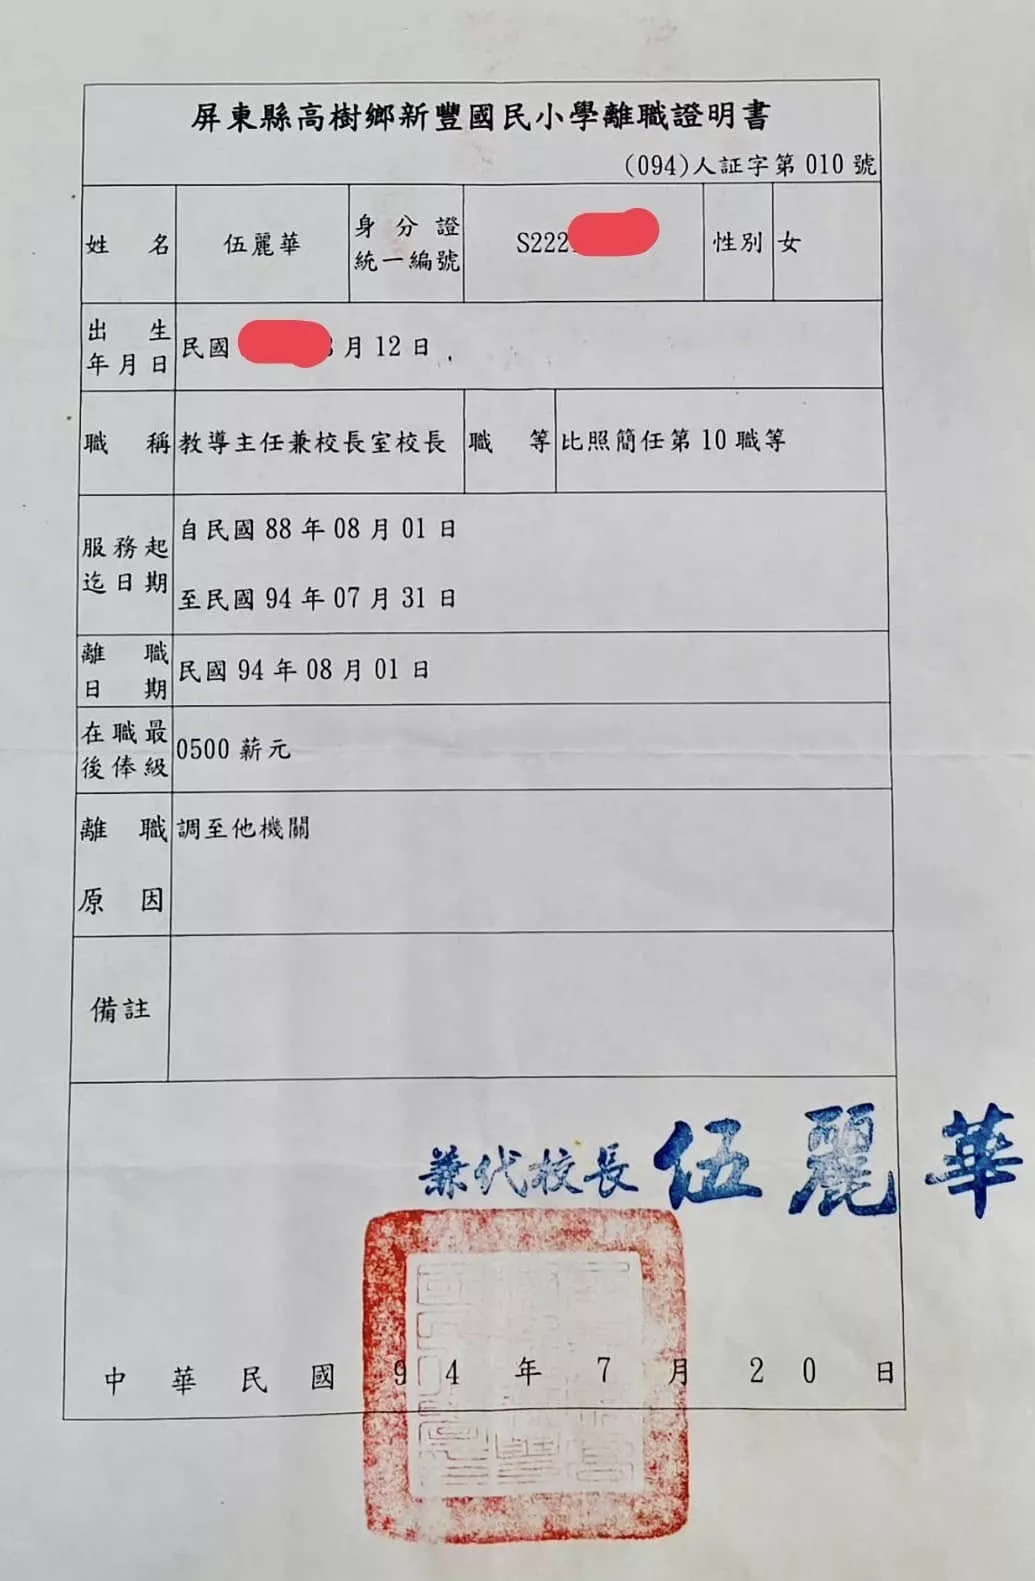 屏東縣高樹鄉新豐國民小學離職證明書
(094)人証字第 010 號
姓名 伍麗華 身分證統一編號 S222 性別 女
出生年月日 民國 月 12 日
職稱 教導主任兼校長室校長 職等 比照簡任第 10 職等
服務起迄日期 自民國 88 年 08 月 01 日
至民國 94 年 07 月 31 日
離職日期 民國 94 年 08 月 01 日
在職最後俸級 0500 薪元
離職原因 調至他機關
備註
兼代校長 伍麗華
中華民國 94 年 7 月 20 日